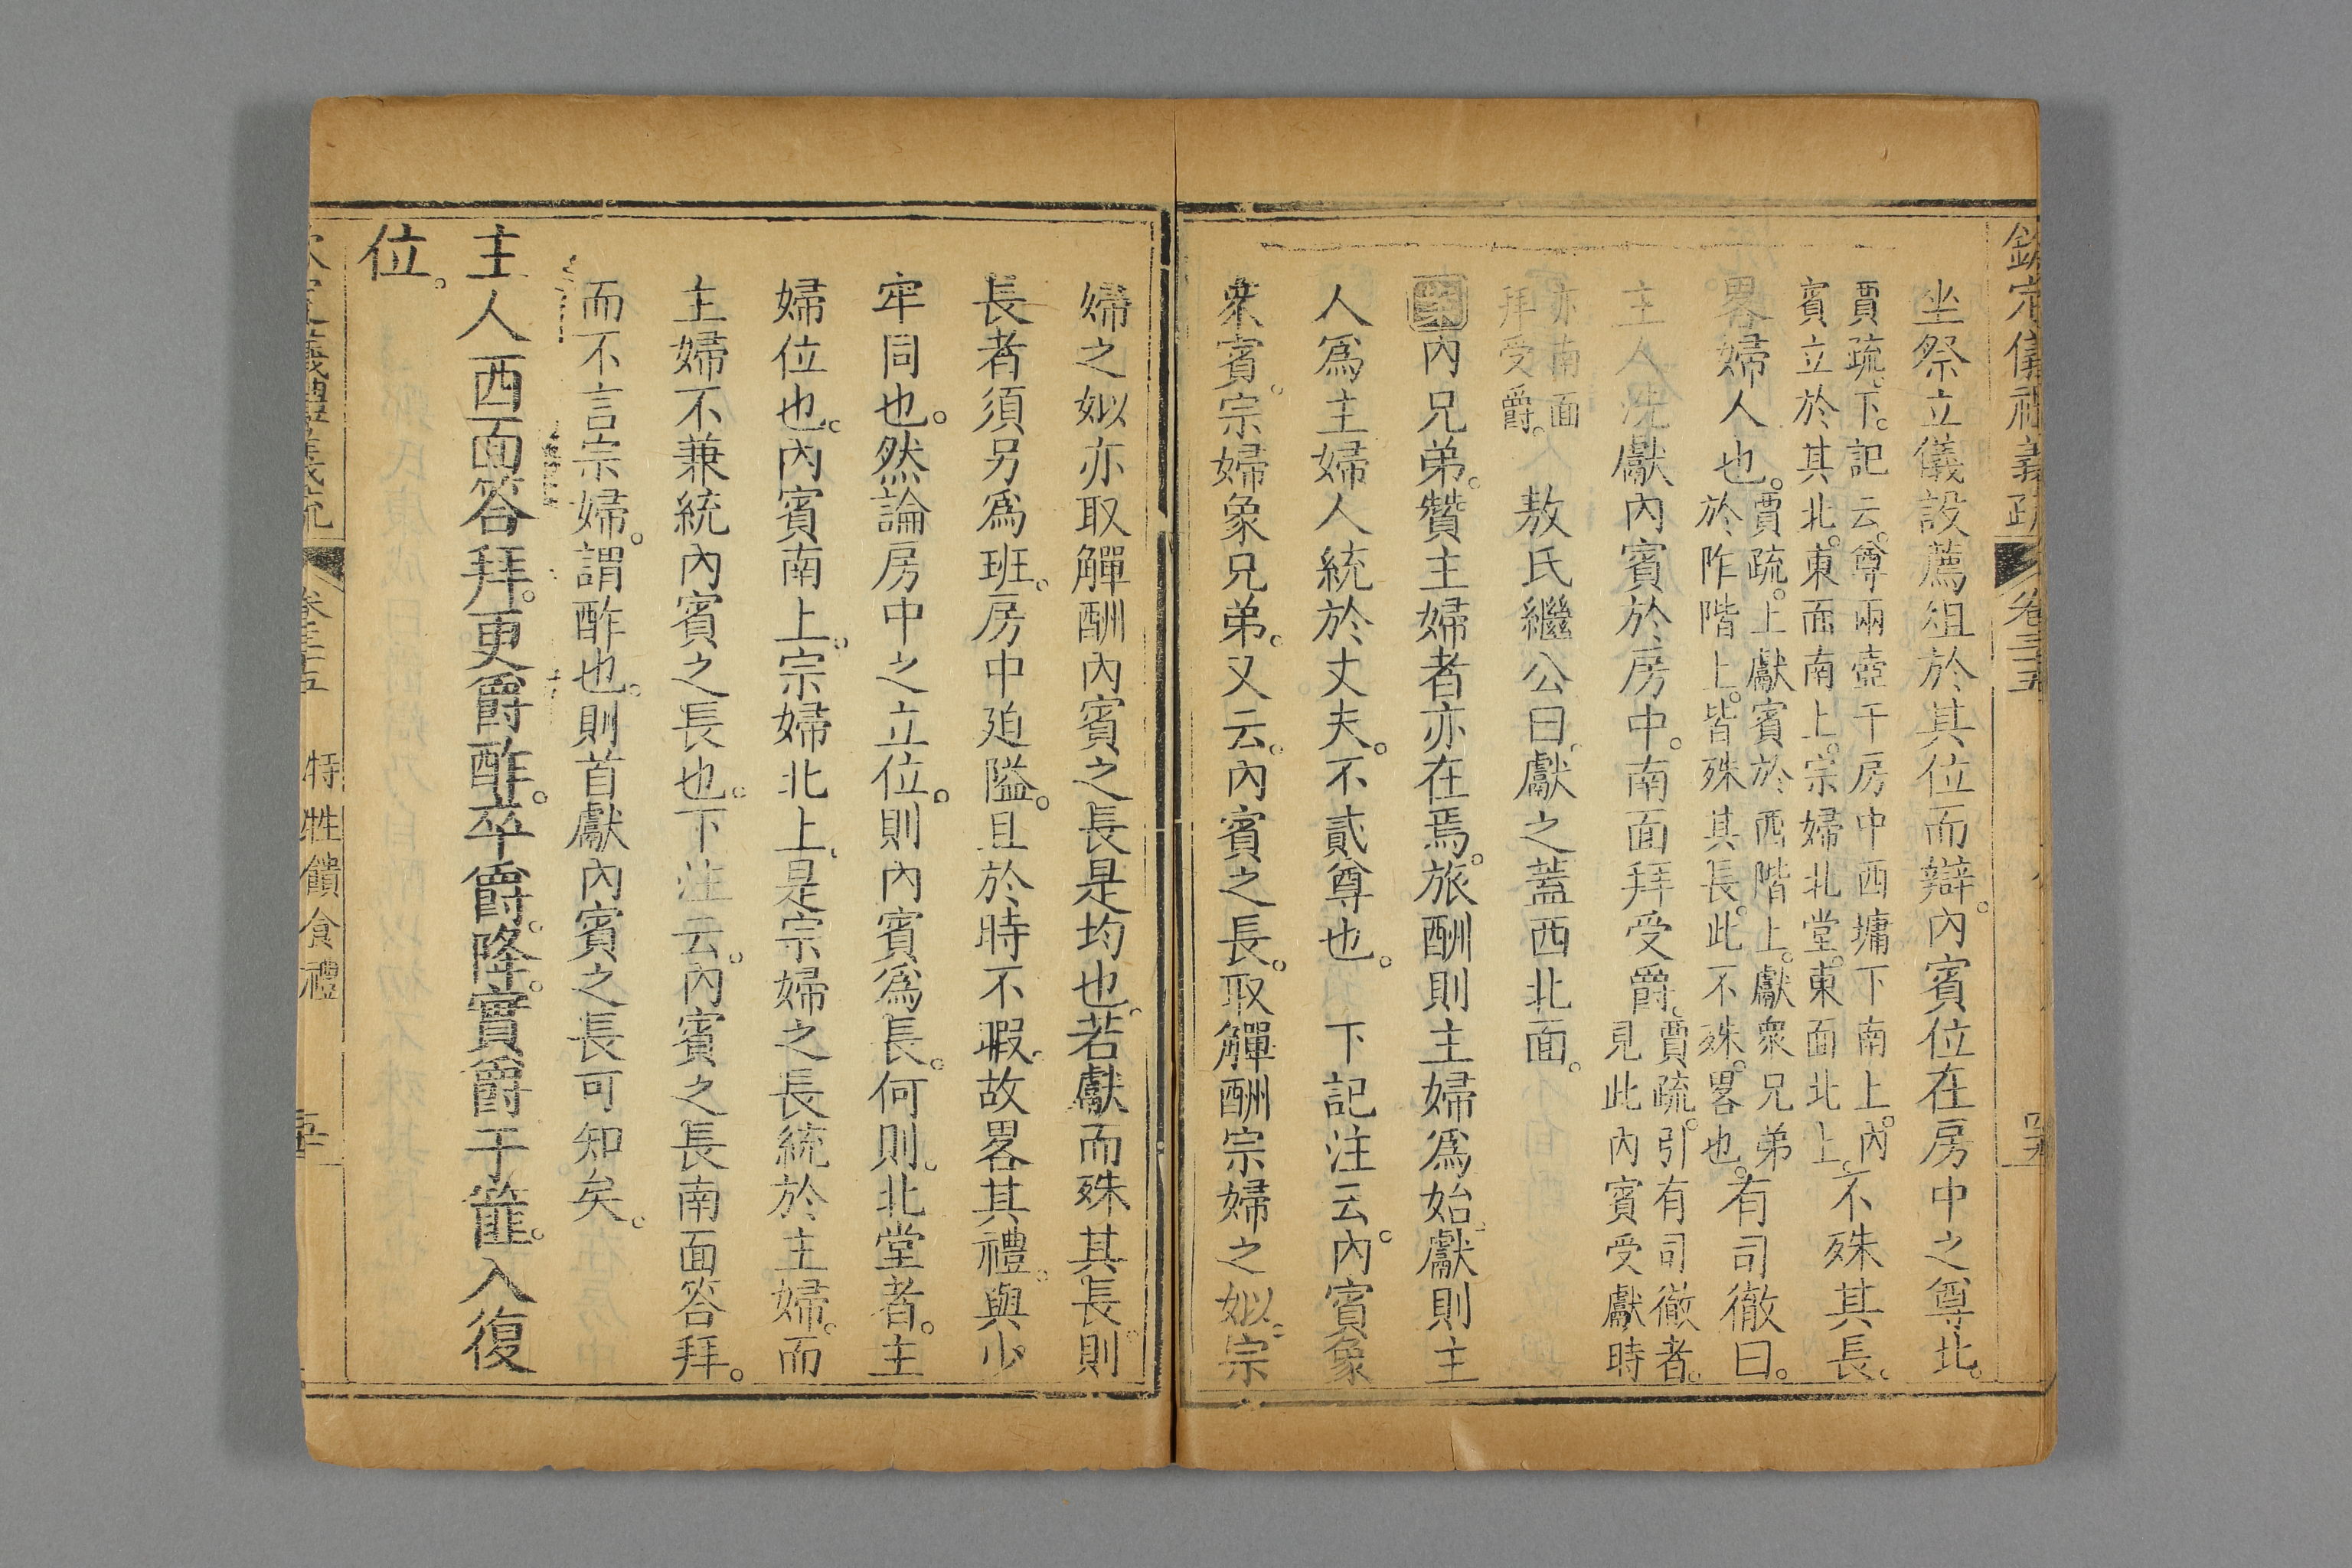 欽定儀禮義疏 卷三十五
坐祭立儀設薦俎於其位而辯。內賓位在房中之尊北。
賈疏。下。記云。尊兩壺于房中西墉下南上。內
賓立於其北。東面南上。宗婦北堂。東面北上。不殊其長。
畧婦人也。賈疏。上獻賓於西階上。獻衆兄弟
於阼階上。皆殊其長。此不殊。畧也。有司徹曰。
主人洗獻內賓於房中。南面拜受爵。賈疏。引有司徹者。
見此內賓受獻時
亦南面
拜受爵。 敖氏繼公曰。獻之蓋西北面。
內兄弟。贊主婦者亦在焉。旅酬則主婦爲始。獻則主
人爲主婦人統於丈夫。不貳尊也。 下記注云。內賓象
衆賓。宗婦象兄弟。又云。內賓之長。取觶酬宗婦之姒。宗
婦之姒亦取觶酬內賓之長是均也。若獻而殊其長。則
長者須另爲班。房中廹隘。且於時不暇。故畧其禮。與少
牢同也。然論房中之立位。則內賓爲長。何則。北堂者。主
婦位也。內賓南上。宗婦北上。是宗婦之長統於主婦。而
主婦不兼統內賓之長也。下注云。內賓之長南面答拜。
而不言宗婦。謂酢也。則首獻內賓之長可知矣。
主人西面答拜。更爵酢。卒爵。降。實爵于篚。入復
位。
特牲饋食禮